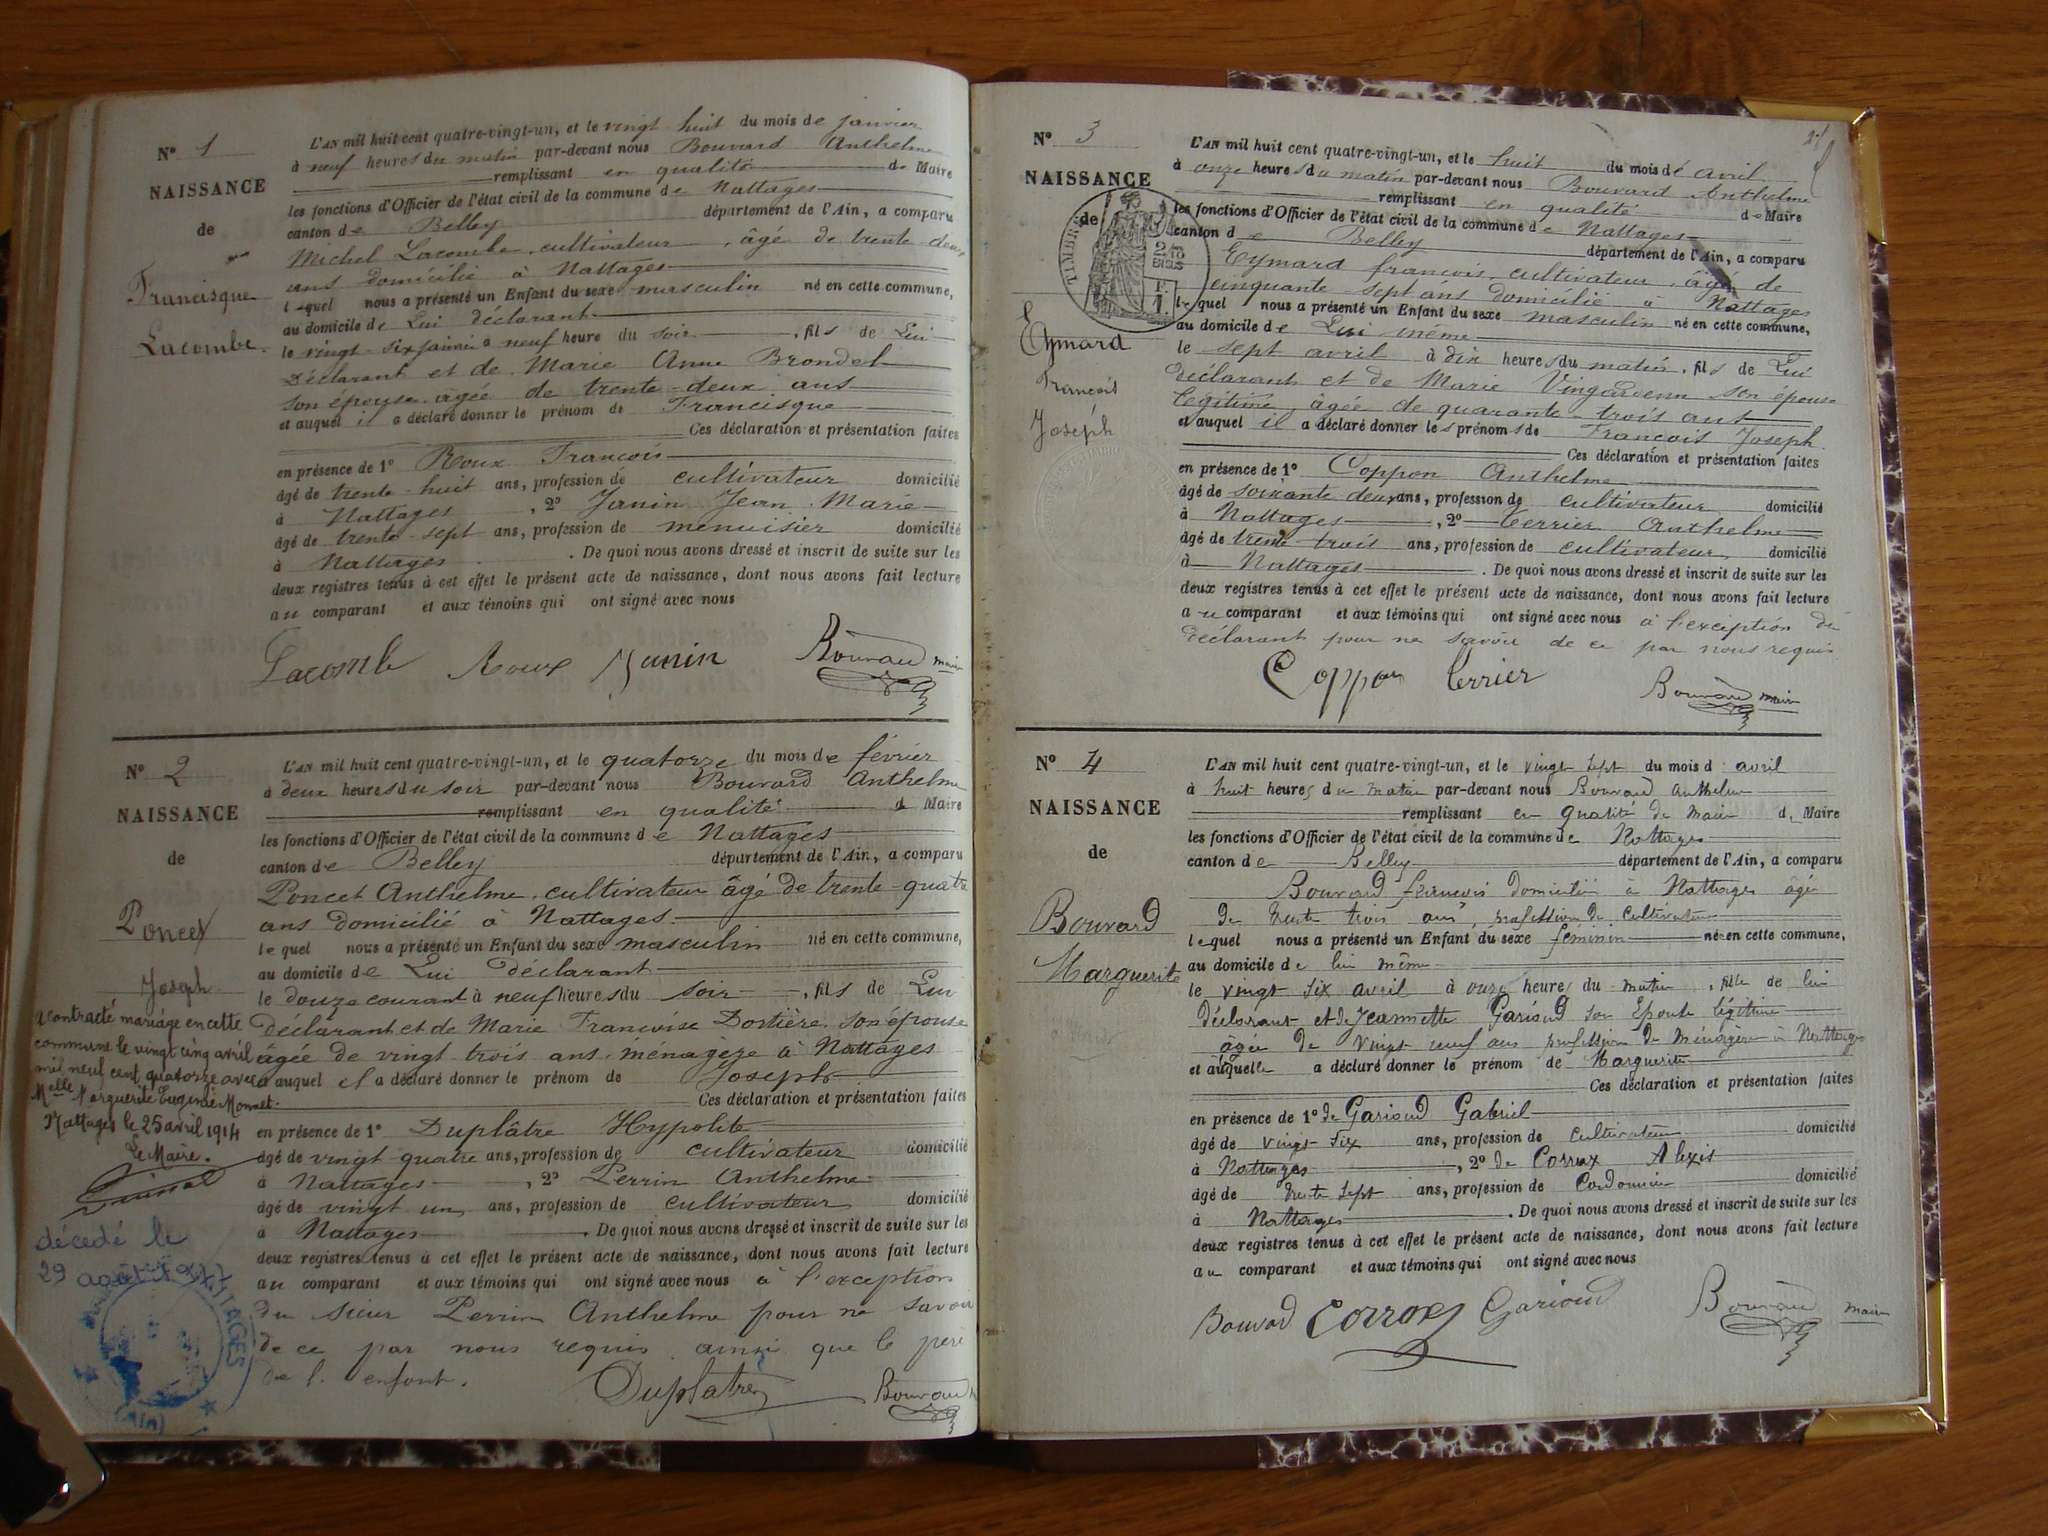 N° 1
NAISSANCE
de
Francisque
Lacombe
L'AN mil huit cent quatre-vingt-un, et le vingt huit du mois de janvier
à neuf heures du matin par-devant nous Bouvard Anthelme
remplissant en qualité de Maire
les fonctions d'Officier de l'état civil de la commune de Nattages
canton de Belley département de l'Ain, a comparu
Michel Lacombe, cultivateur, âgé de trente deux
ans domicilié à Nattages
lequel nous a présenté un Enfant du sexe masculin né en cette commune,
au domicile de Lui déclarant
le vingt-six janvier à neuf heure du soir, fils de Lui
Déclarant et de Marie Anne Brondel
son épouse âgée de trente-deux ans
et auquel il a déclaré donner le prénom de Francisque
Ces déclaration et présentation faites
en présence de 1° Roux François
âgé de trente-huit ans, profession de cultivateur domicilié
à Nattages, 2° Janin Jean Marie
âgé de trente-sept ans, profession de menuisier domicilié
à Nattages. De quoi nous avons dressé et inscrit de suite sur les
deux registres tenus à cet effet le présent acte de naissance, dont nous avons fait lecture
au comparant et aux témoins qui ont signé avec nous
Lacombe Roux Janin Bouvard maire
N° 2
NAISSANCE
de
Poncet
Joseph
a contracté mariage en cette
commune le vingt cinq avril
mil neuf cent quatorze avec
Melle Marguerite Eugénie Monnet.
Nattages le 25 avril 1914
Le Maire.
décédé le
29 août
L'AN mil huit cent quatre-vingt-un, et le quatorze du mois de février
à deux heures du soir par-devant nous Bouvard Anthelme
remplissant en qualité d Maire
les fonctions d'Officier de l'état civil de la commune de Nattages
canton de Belley département de l'Ain, a comparu
Poncet Anthelme, cultivateur âgé de trente-quatre
ans domicilié à Nattages
lequel nous a présenté un Enfant du sexe masculin né en cette commune,
au domicile de Lui déclarant
le douze courant à neuf heures du soir, fils de Lui
Déclarant et de Marie Françoise Dostière son épouse
âgée de vingt trois ans, ménagère à Nattages
et auquel il a déclaré donner le prénom de Joseph
Ces déclaration et présentation faites
en présence de 1° Duplâtre Hypolite
âgé de vingt quatre ans, profession de cultivateur domicilié
à Nattages, 2° Perrin Anthelme
âgé de vingt un ans, profession de cultivateur domicilié
à Nattages. De quoi nous avons dressé et inscrit de suite sur les
deux registres tenus à cet effet le présent acte de naissance, dont nous avons fait lecture
au comparant et aux témoins qui ont signé avec nous à l'exception
du sieur Perrin Anthelme pour ne savoir
de ce par nous requis ainsi que le père
de l'enfant.
Duplatre Bouvard
N° 3
NAISSANCE
de
TIMBRE
2/10
BISUS
Eymard
François
Joseph
L'AN mil huit cent quatre-vingt-un, et le huit du mois de avril
à onze heures du matin par-devant nous Bouvard Anthelme
remplissant en qualité de Maire
les fonctions d'Officier de l'état civil de la commune de Nattages
canton de Belley département de l'Ain, a comparu
Eymard françois, cultivateur, âgé de
cinquante-sept ans domicilié à Nattages
lequel nous a présenté un Enfant du sexe masculin né en cette commune,
au domicile de Lui même
le sept avril à dix heures du matin, fils de Lui
déclarant et de Marie Vingardenn son épouse
légitime, âgée de quarante-trois ans
et auquel il a déclaré donner les prénoms de François Joseph
Ces déclaration et présentation faites
en présence de 1° Coppon Anthelme
âgé de soixante deux ans, profession de cultivateur domicilié
à Nattages, 2° Terrier Anthelme
âgé de trente-trois ans, profession de cultivateur domicilié
à Nattages. De quoi nous avons dressé et inscrit de suite sur les
deux registres tenus à cet effet le présent acte de naissance, dont nous avons fait lecture
au comparant et aux témoins qui ont signé avec nous à l'exception du
déclarant pour ne savoir de ce par nous requis
Coppon Terrier Bouvard maire
N° 4
NAISSANCE
de
Bouvard
Marguerite
L'AN mil huit cent quatre-vingt-un, et le vingt sept du mois d avril
à huit heures du matin par-devant nous Bouvard Anthelme
remplissant en qualité de Maire d Maire
les fonctions d'Officier de l'état civil de la commune de Nattages
canton de Belley département de l'Ain, a comparu
Bouvard françois domicilié à Nattages âgé
de trente trois ans, profession de cultivateur
lequel nous a présenté un Enfant du sexe féminin né en cette commune,
au domicile de lui même
le vingt six avril à onze heures du matin, fille de lui
Déclarant et de Jeannette Garioud son Epouse légitime
âgée de vingt neuf ans profession de Ménagère à Nattages
et à laquelle a déclaré donner le prénom de Marguerite
Ces déclaration et présentation faites
en présence de 1° de Garioud Gabriel
âgé de vingt six ans, profession de cultivateur domicilié
à Nattages, 2° de Corrox Alexis
âgé de trente sept ans, profession de Cordonnier domicilié
à Nattages. De quoi nous avons dressé et inscrit de suite sur les
deux registres tenus à cet effet le présent acte de naissance, dont nous avons fait lecture
au comparant et aux témoins qui ont signé avec nous
Bouvard Corrox Garioud Bouvard maire